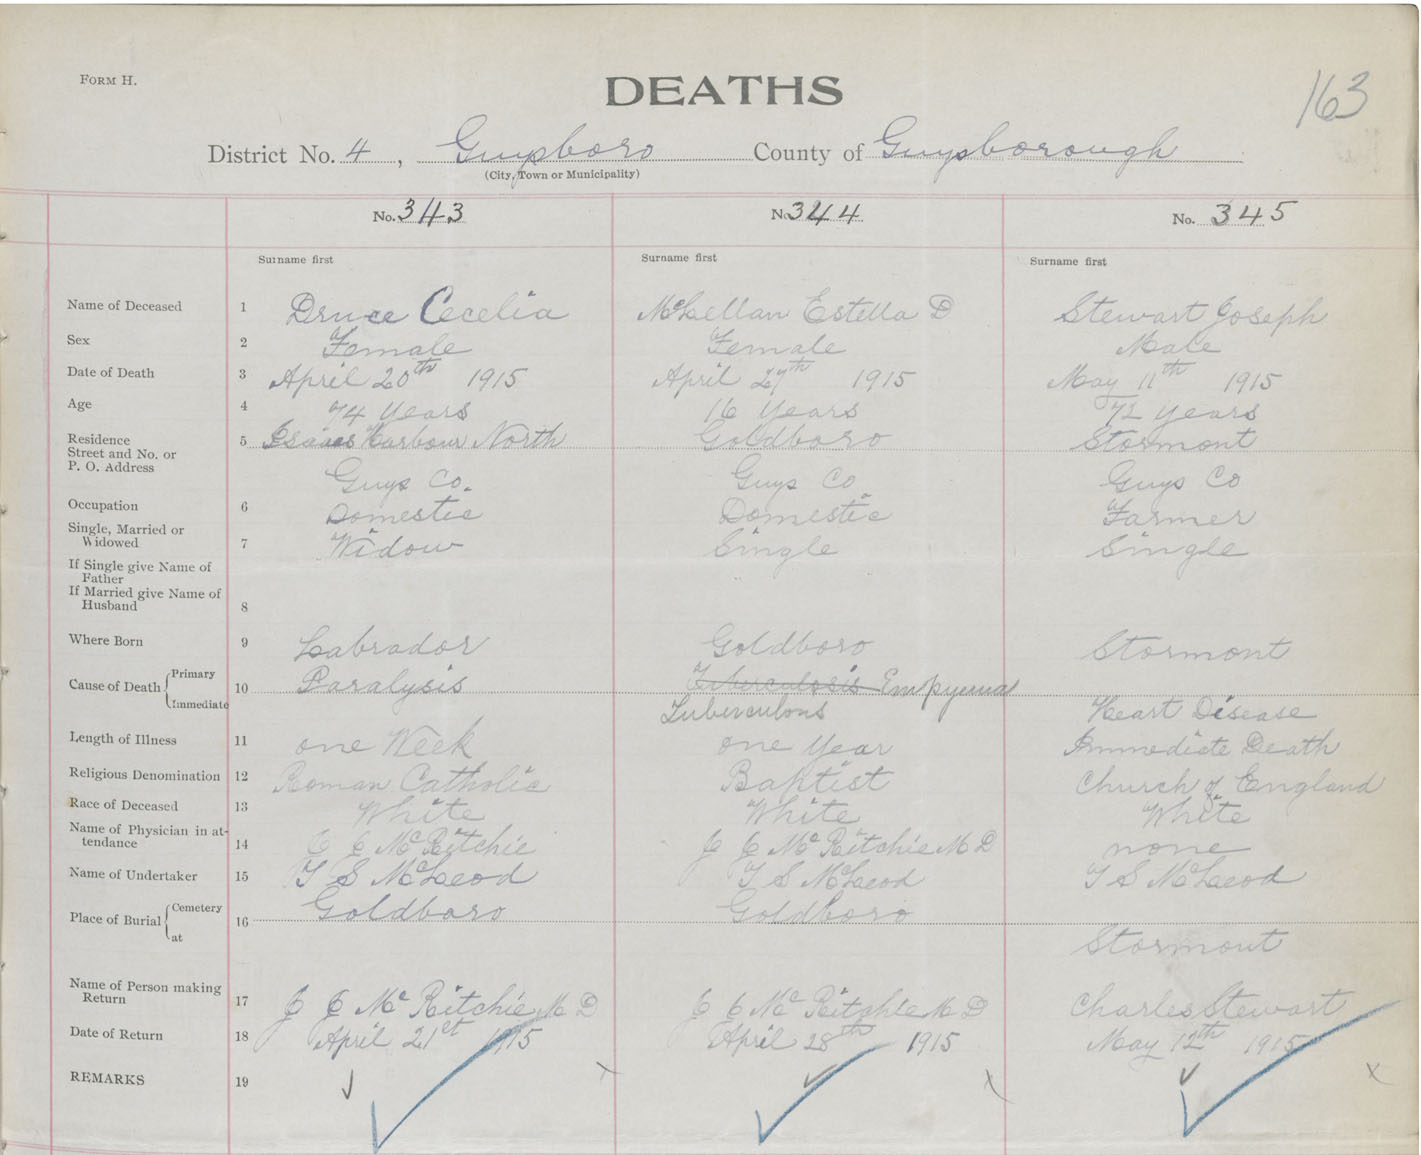 FORM H.
DEATHS
163
District No. 4, Guysboro County of Guysborough
(City, Town or Municipality)
No. 343 No. 344 No. 345
Surname first Surname first Surname first
Name of Deceased 1 Druce Cecelia McLellan Estella D Stewart Joseph
Sex 2 Female Female Male
Date of Death 3 April 20th 1915 April 27th 1915 May 11th 1915
Age 4 74 years 16 years 72 years
Residence 5 Isaacs Harbour North Goldboro Stormont
Street and No. or
P. O. Address Guys Co. Guys Co Guys Co
Occupation 6 Domestic Domestic Farmer
Single, Married or
Widowed 7 Widow Single Single
If Single give Name of
Father
If Married give Name of
Husband 8
Where Born 9 Labrador Goldboro Stormont
Cause of Death Primary 10 Paralysis Tuberculosis Empyema
Immediate Tuberculous Heart Disease
Length of Illness 11 one Week one Year Immediate Death
Religious Denomination 12 Roman Catholic Baptist Church of England
Race of Deceased 13 White White White
Name of Physician in at-
tendance 14 J E McRitchie J E McRitchie M D none
Name of Undertaker 15 T S McLeod T S McLeod T S McLeod
Place of Burial Cemetery 16 Goldboro Goldboro
at Stormont
Name of Person making
Return 17 J E McRitchie M D J E McRitchie M D Charles Stewart
Date of Return 18 April 21st 1915 April 28th 1915 May 12th 1915
REMARKS 19